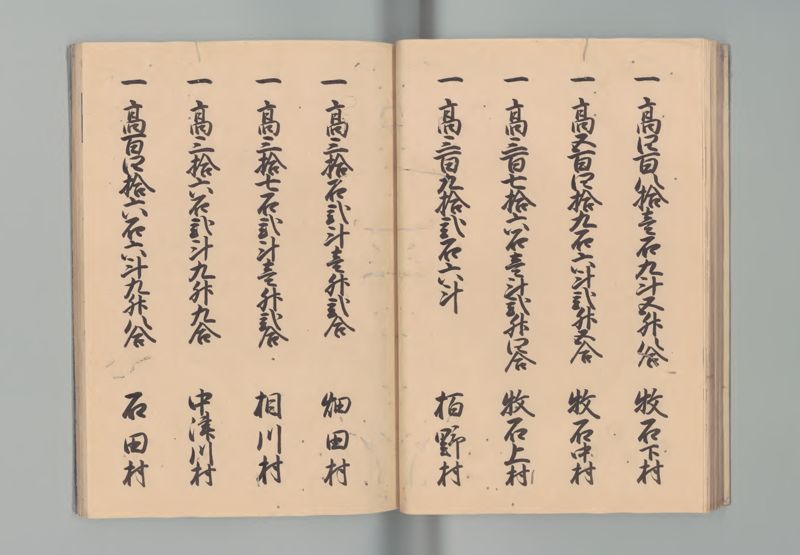 一 高四百八拾壱石九斗五升八合 牧石下村
一 高五百四拾九石六斗弐升五合 牧石中村
一 高三百七拾六石壱斗弐升四合 牧石上村
一 高三百九拾弐石六斗 栢野村
一 高三拾石弐斗壱升弐合 畑田村
一 高三拾七石弐斗壱升弐合 相川村
一 高三拾六石弐斗九升九合 中津川村
一 高百四拾六石六斗九升八合 石田村